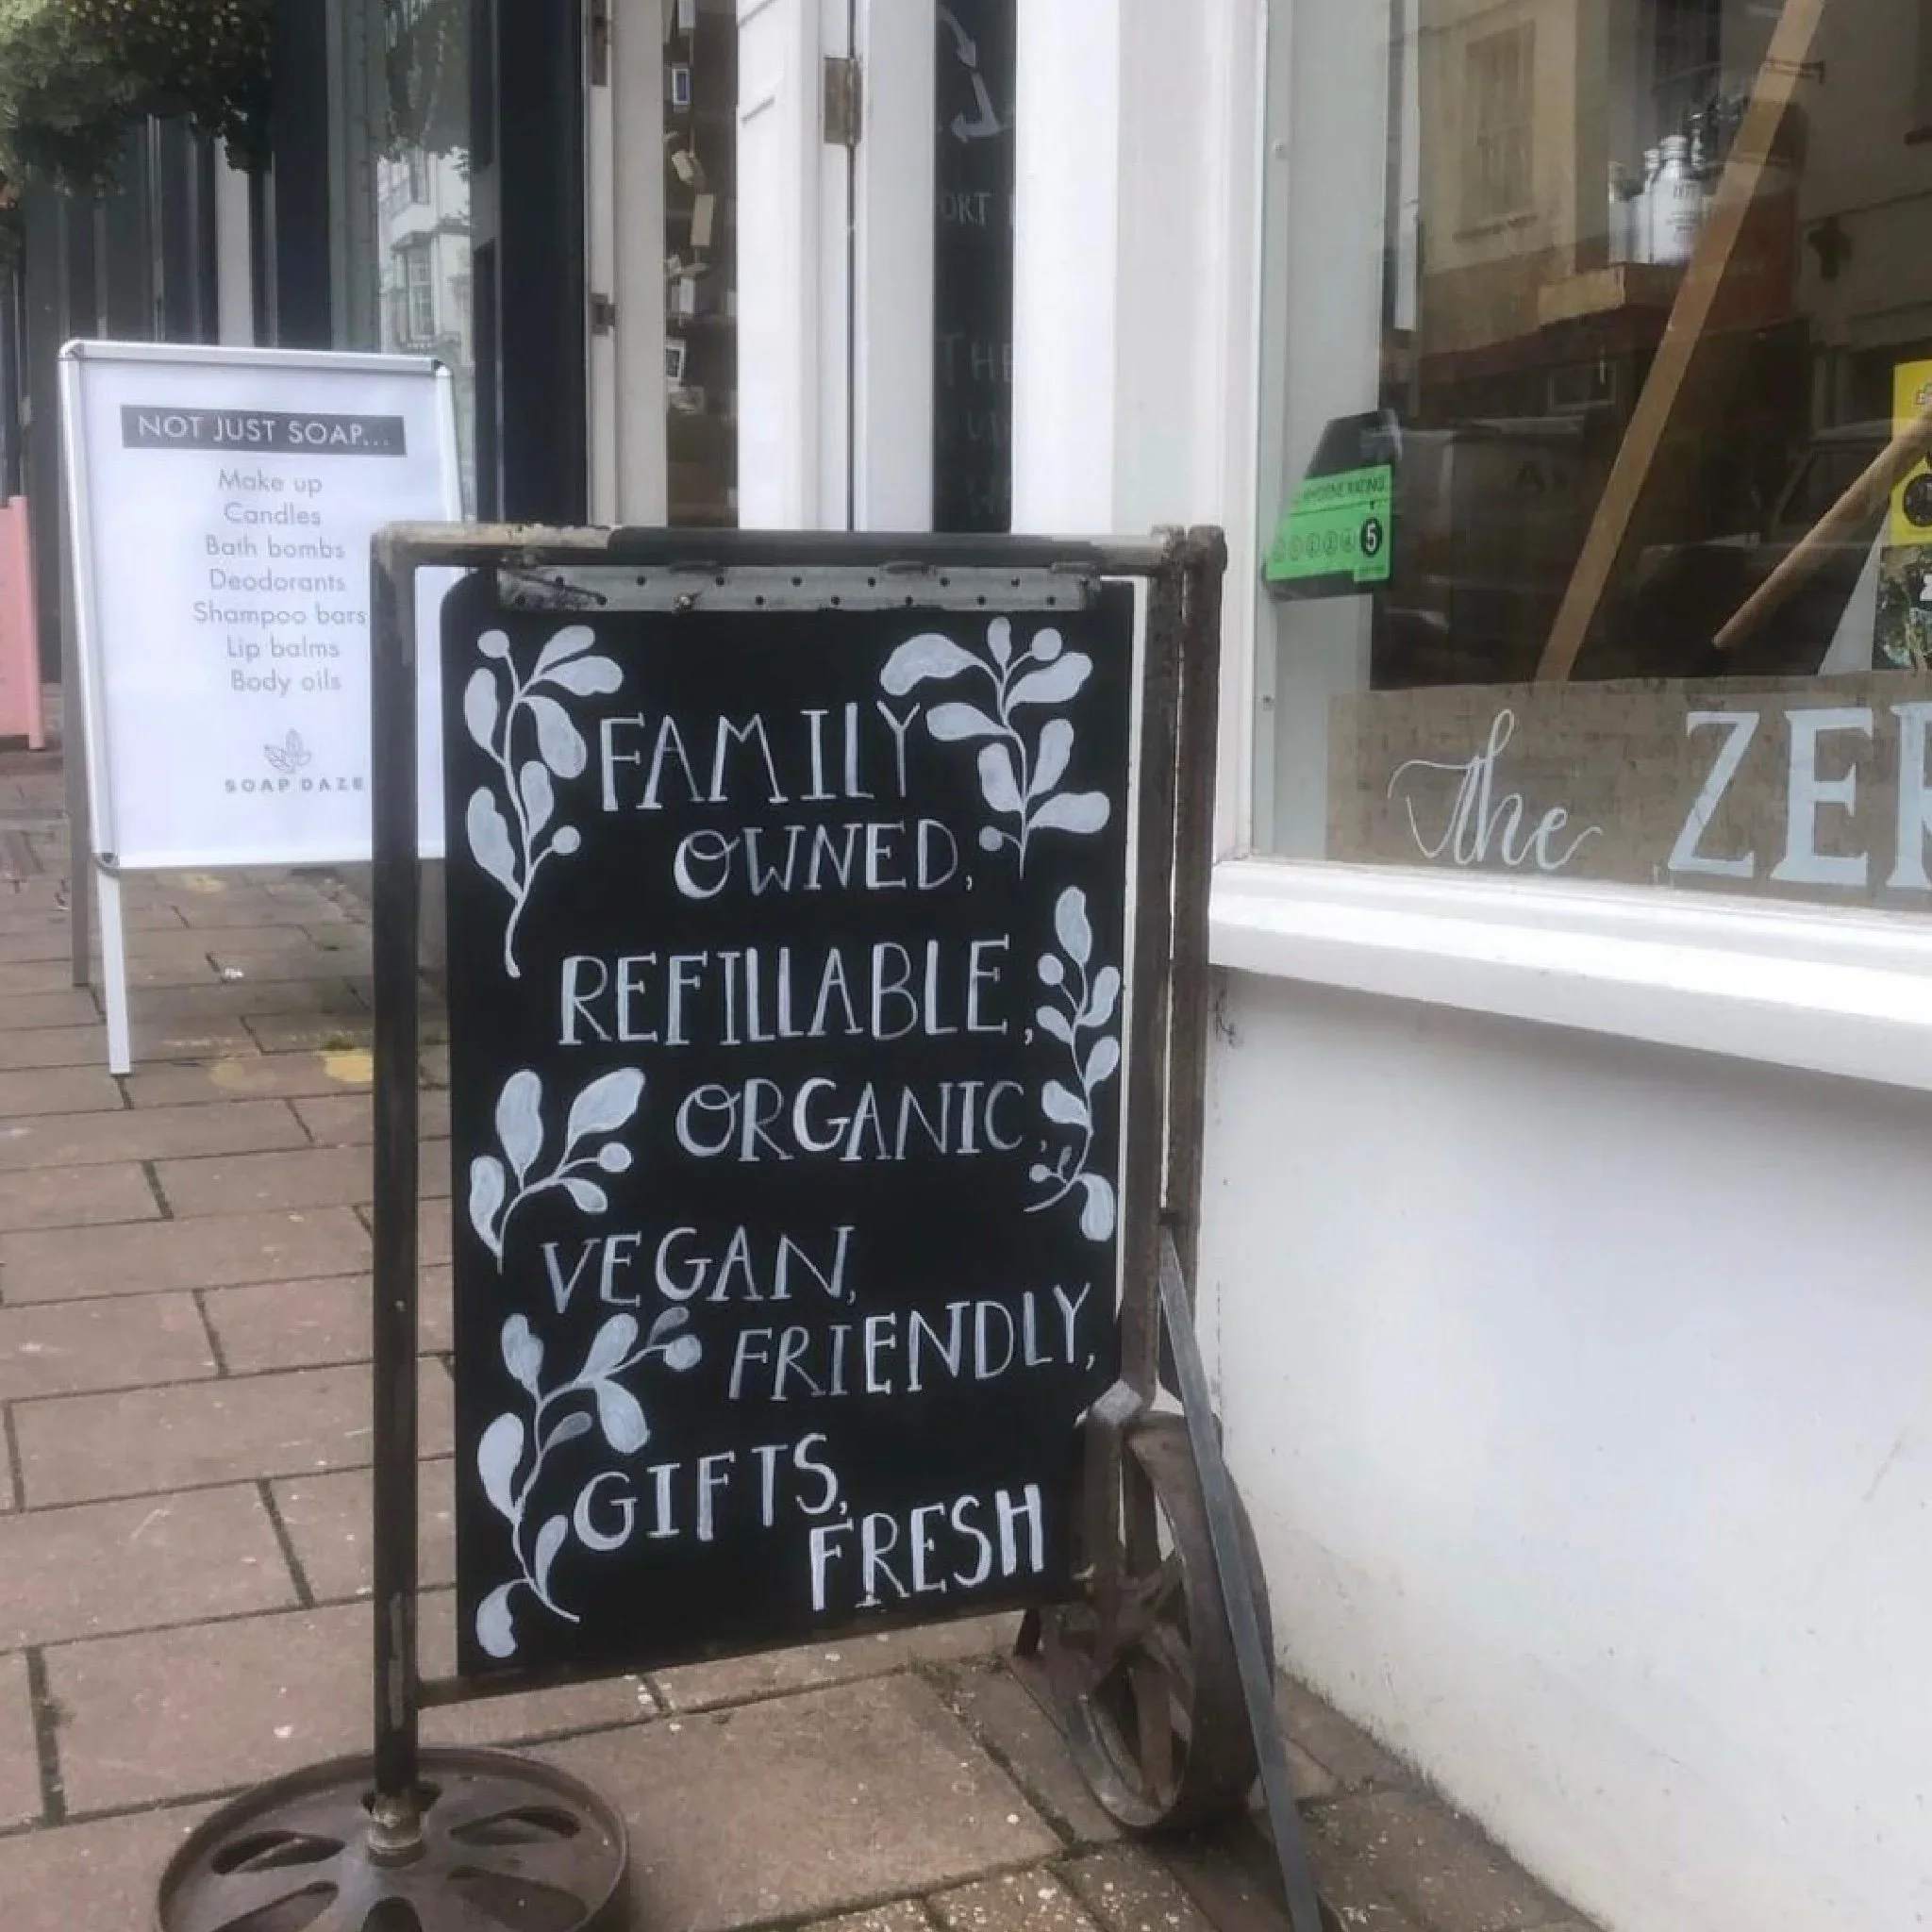 NOT JUST SOAP...
Make up
Candles
Bath bombs
Deodorants
Shampoo bars
Lip balms
Body oils
SOAP DAZE
FAMILY
OWNED,
REFILLABLE,
ORGANIC,
VEGAN,
FRIENDLY,
GIFTS,
FRESH
ORT
THE
HYGIENE RATING
5
The ZER